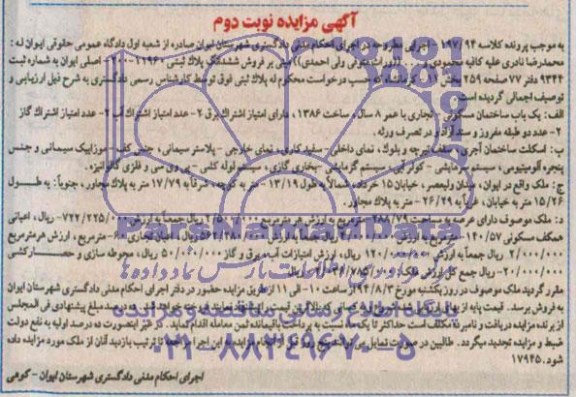 آگهی مزایده نوبت دوم
به موجب پرونده کلاسه ۱۹۷/۹۴ اجرایی مطروحه در اجرای احکام مدنی دادگستری شهرستان ایوان صادره از شعبه اول دادگاه عمومی حقوقی ایوان له:
محمدرضا نادری علیه کافیه محمودی و ... (وراث متوفی ولی احمدی)) مبنی بر فروش ششدانگ پلاک ثبتی ۱۱۹۶۰-۲۰۰۰ اصلی ایوان به شماره ثبت
۹۳۴۴ دفتر ۷۷ صفحه ۲۵۹ بخش کرمانشاه که حسب درخواست محکوم له پلاک ثبتی فوق توسط کارشناس رسمی دادگستری به شرح ذیل ارزیابی و
توصیف اجمالی گردیده است
الف: یک باب ساختمان مسکونی - تجاری با عمر ۸ سال، ساخت ۱۳۸۶، دارای امتیاز اشتراک برق ۲-عدد امتیاز اشتراک آب ۲- عدد امتیاز اشتراک گاز
۲- عدد دو طبقه مفروز و سند آزاد و در تصرف ورثه.
ب: اسکلت ساختمان آجری، سقف تیرچه و بلوک، نمای داخلی- سفیدکاری، نمای خارجی - پلاستر سیمانی، جنس کف- موزاییک سیمانی و جنس
پنجره آلومینیومی، سیستم سرمایشی- کولر آبی، سیستم گرمایشی -بخاری گازی، سیستم لوله کشی - پی وی سی و فلزی گالوانیزه.
ج: ملک واقع در ایوان، میدان ولیعصر، خیابان ۱۵ خرداد، شمالاً به طول ۱۳/۱۹ متر به کوچه، شرقاً به ۱۷/۷۹ متر به پلاک مجاور، جنوباً: به طول
۱۵/۲۶ متر به خیابان، غرباً به ۲۶/۲۹- متر به پلاک مجاور.
د: ملک موصوف دارای عرصه به مساحت ۲۸۸/۷۹ مترمربع به ارزش هر مترمربع ۲/۵۰۰/۰۰۰ ریال جمعاً به ارزش ۷۲۲/۲۲۵/۰۰۰- ریال، اعیانی
همکف مسکونی ۱۴۰/۵۷- مترمربع به ارزش ریال جمعاً به ارزش ریال، اعیان تجاری ۶۰- مترمربع، ارزش هر مترمربع
۲/۰۰۰/۰۰۰ ریال جمعاً به ارزش ۱۲۰/۰۰۰/۰۰۰ ریال، ارزش امتیازات آب، برق و گاز ۵۰/۰۰۰/۰۰۰ ریال، محوطه سازی و حصارکشی
۲۰/۰۰۰/۰۰۰- ریال جمع کل ارزش ملک ریال
مقرر گردید ملک موصوف در روز یکشنبه مورخ ۹۴/۸/۳ ساعت ۱۰- الی ۱۱ از طریق مزایده حضوری در دفتر اجرای احکام مدنی دادگستری شهرستان ایوان
به فروش برسد. قیمت پایه از بهای ارزیابی شروع و به کسانی که بالاترین قیمت را پیشنهاد نمایند فروخته خواهد شد. ده درصد مبلغ پیشنهادی فی المجلس
از برنده مزایده دریافت و نامبرده مکلف است حداکثر تا یک ماه نسبت به پرداخت باقیمانده ثمن معامله اقدام نماید. در غیر اینصورت ده درصد اولیه به نفع دولت
ضبط و مزایده تجدید میگردد. طالبین در صورت تمایل می توانند قبل از انجام مزایده به این اجرا مراجعه تا ترتیب بازدید آنان از ملک مورد مزایده داده
شود. ۱۷۹۴۵
اجرای احکام مدنی دادگستری شهرستان ایوان - گوهی
ParsNamadData
پایگاه اطلاع رسانی مناقصه و مزایده
۰۲۱-۸۸۳۴۹۶۷۰-۵